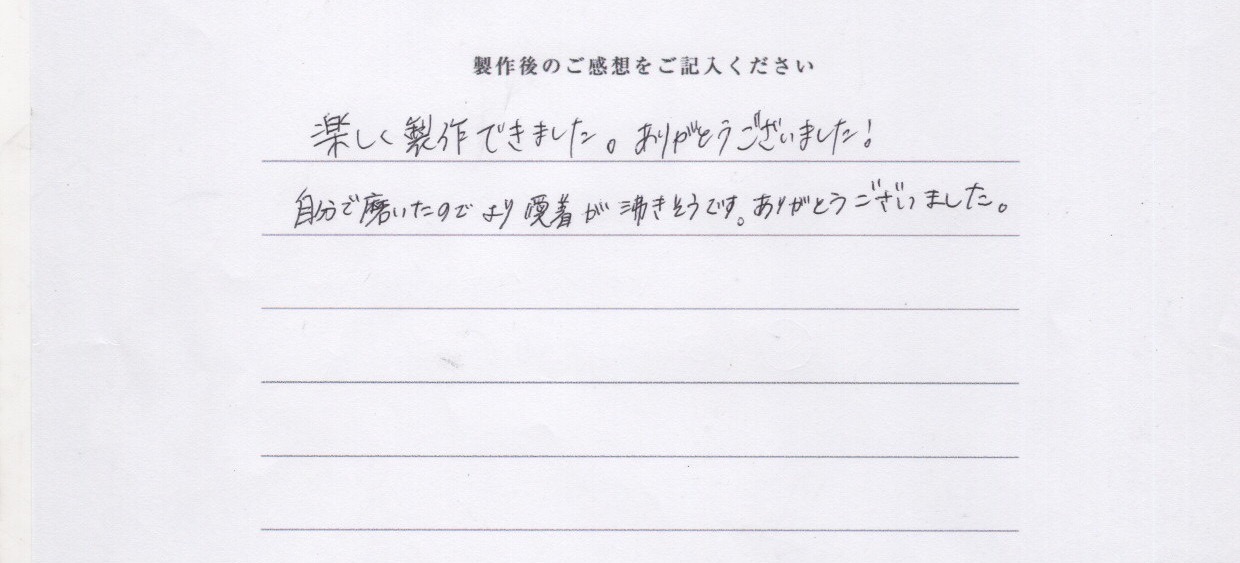 製作後のご感想をご記入ください
楽しく製作できました。ありがとうございました!
自分で磨いたのでより愛着が沸きそうです。ありがとうございました。